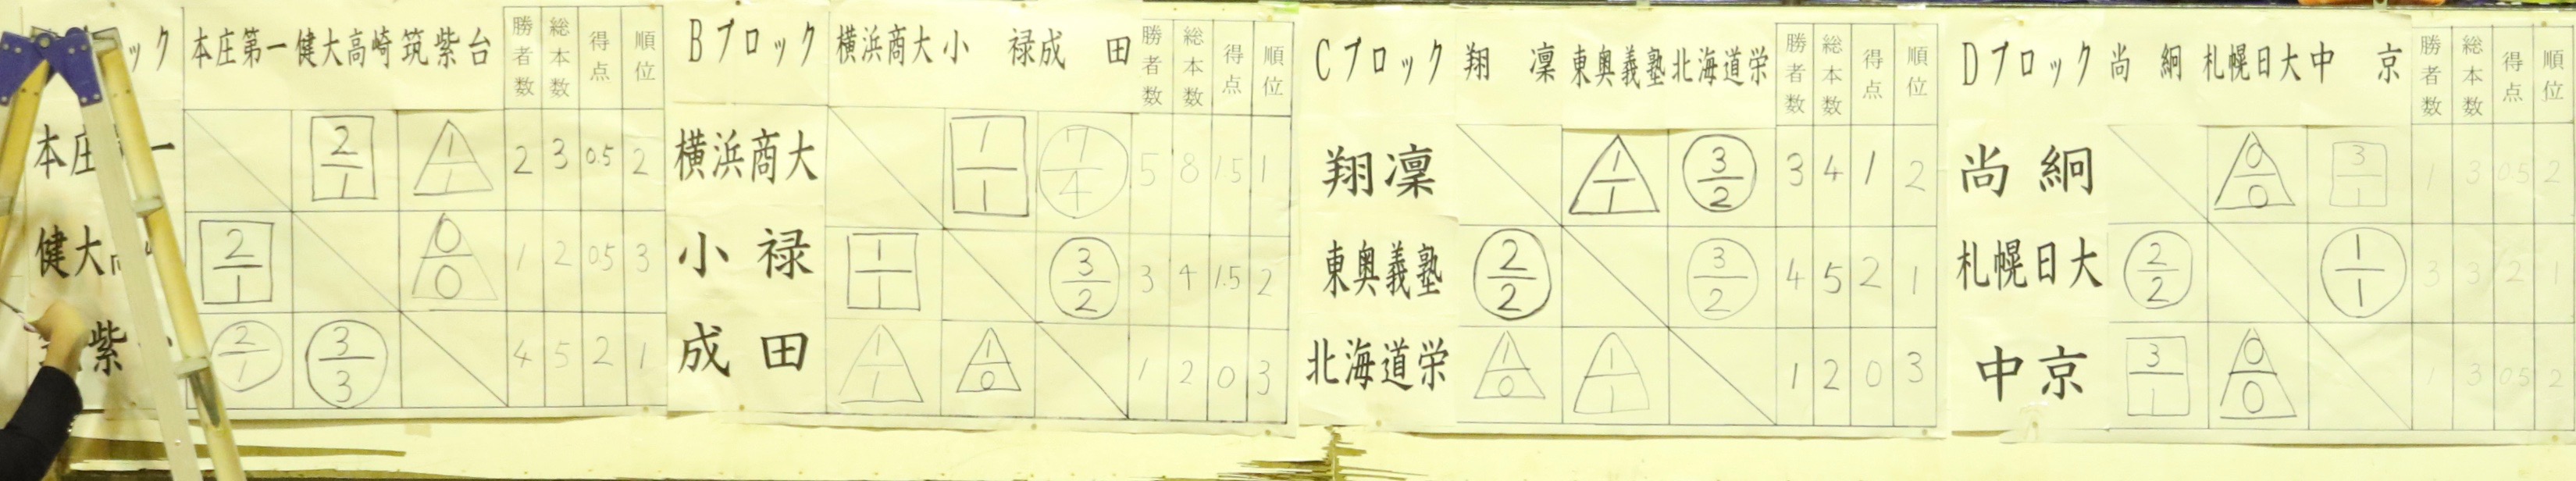 ック 本庄第一 健大高崎 筑紫台 勝者数 総本数 得点 順位
本庄 一 2/1 1/1 2 3 0.5 2
健大高 2/1 0/0 1 2 0.5 3
紫 2/1 3/3 4 5 2 1
Bブロック 横浜商大 小 禄 成 田 勝者数 総本数 得点 順位
横浜商大 1/1 7/4 5 8 1.5 1
小 禄 1/1 3/2 3 4 1.5 2
成 田 1/1 1/0 1 2 0 3
Cブロック 翔 凜 東奥義塾 北海道栄 勝者数 総本数 得点 順位
翔凜 1/1 3/2 3 4 1 2
東奥義塾 2/2 3/2 4 5 2 1
北海道栄 1/0 1/1 1 2 0 3
Dブロック 尚 絅 札幌日大 中 京 勝者数 総本数 得点 順位
尚 絅 0/0 3/1 1 3 0.5 2
札幌日大 2/2 1/1 3 3 2 1
中京 3/1 0/0 1 3 0.5 2